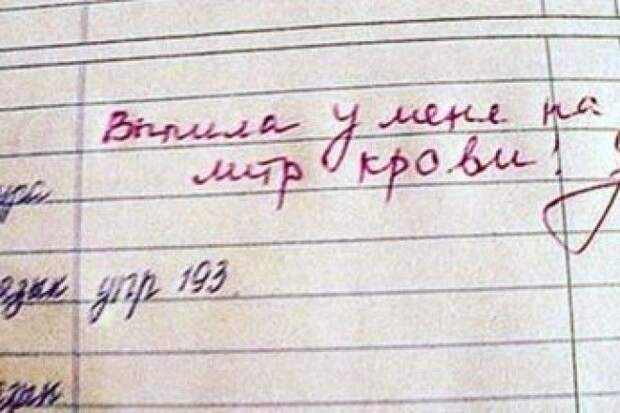 Выпила у меня на
литр крови!
ура
язык упр 193